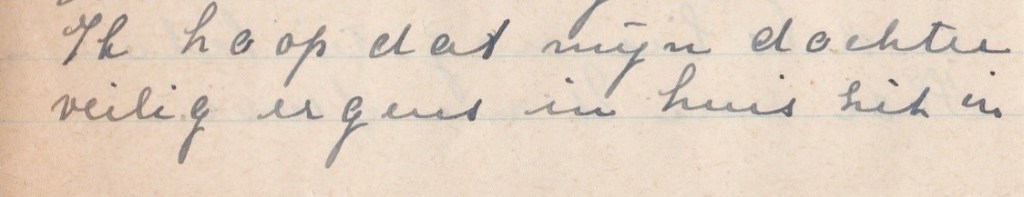 Ik hoop dat mijn dochter
veilig ergens in huis zit in